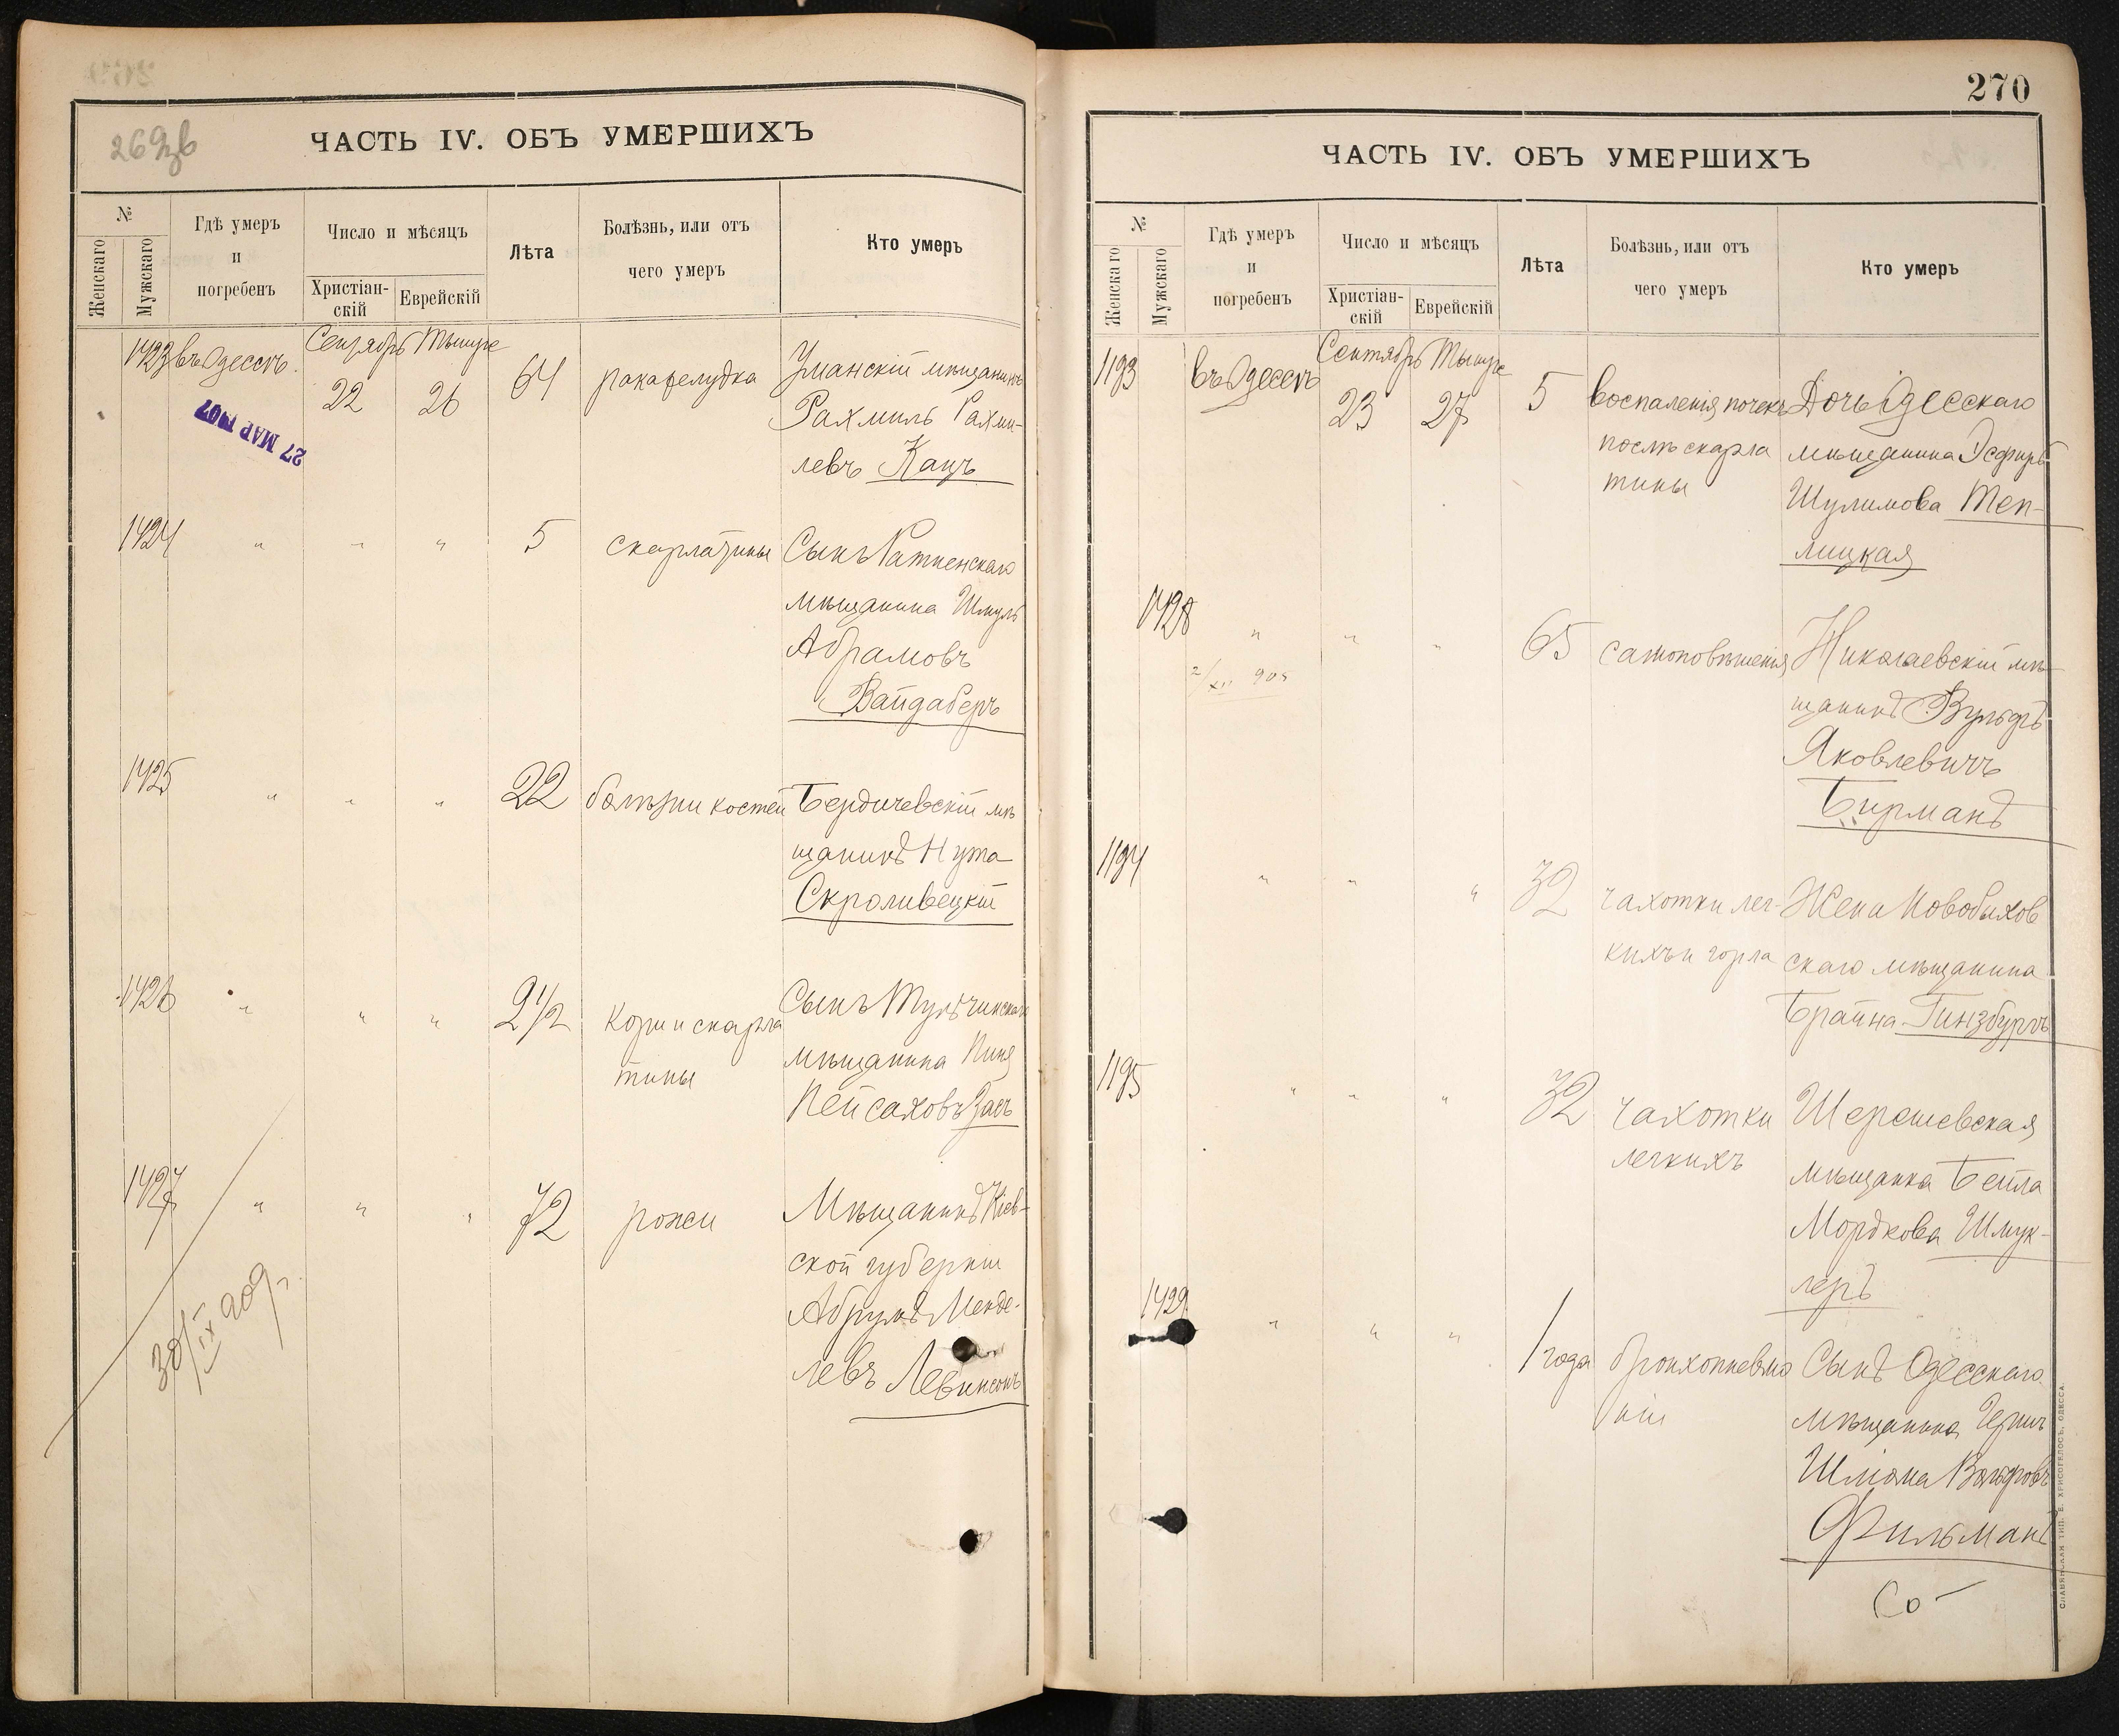 269зв
ЧАСТЬ IV. ОБЪ УМЕРШИХЪ
№
Женскаго
Мужскаго
Гдѣ умеръ
и
погребенъ
Число и мѣсяцъ
Христіан-
скій
Еврейскій
Лѣта
Болѣзнь, или отъ
чего умеръ
Кто умеръ
1423 въ Одессѣ. Сентябрь Тышре
22 26 64 рака желудка Уманскій мѣщанинъ
27 МАР 1907
Рахмиль Рахми-
левъ Кацъ
1424 " " " 5 скарлатины Сынъ Ратненскаго
мѣщанина Шмуль
Абрамовъ
Вайдаберъ
1425 " " " 22 болѣзни костей Бердичевскій мѣ
щанинъ Нута
Скроливецкій
1426 " " " 2 1/2 кори и скарла
тины
Сынъ Тульчинскаго
мѣщанина Пиня
Пейсаховъ Засъ
1427 " " " 72 рожи Мѣщанинъ Кіев-
ской губерніи
Абрумъ Менде-
левъ Левинсонъ
30/IX 909 г.
270
ЧАСТЬ IV. ОБЪ УМЕРШИХЪ
№
Женскаго
Мужскаго
Гдѣ умеръ
и
погребенъ
Число и мѣсяцъ
Христіан-
скій
Еврейскій
Лѣта
Болѣзнь, или отъ
чего умеръ
Кто умеръ
1193 въ Одессѣ Сентябрь Тышре
23 27 5 воспаленія почекъ
послѣ скарла
тины
Дочь Одесскаго
мѣщанина Эсфирь
Шулимова Теп-
лицкая
1428 " " " 65 самоповѣшенія Николаевскій мѣ
щанинъ Вульфъ
Яковлевичъ
Бирманъ
2/XII 905
1194 " " " 32 чахотки лег-
кихъ и горла
Жена Новобыхов
скаго мѣщанина
Брайна Гинзбургъ
1195 " " " 32 чахотки
легкихъ
Шерешевская
мѣщанка Бейла
Мордкова Шмук-
леръ
1429 " " " 1 года бронхопневмо
ніи
Сынъ Одесскаго
мѣщанина Гершъ
Шлiома Вольфовъ
Фильманъ
СЛАВЯНСКАЯ ТИП. Е. ХРИСОГЕЛОСЪ, ОДЕССА.